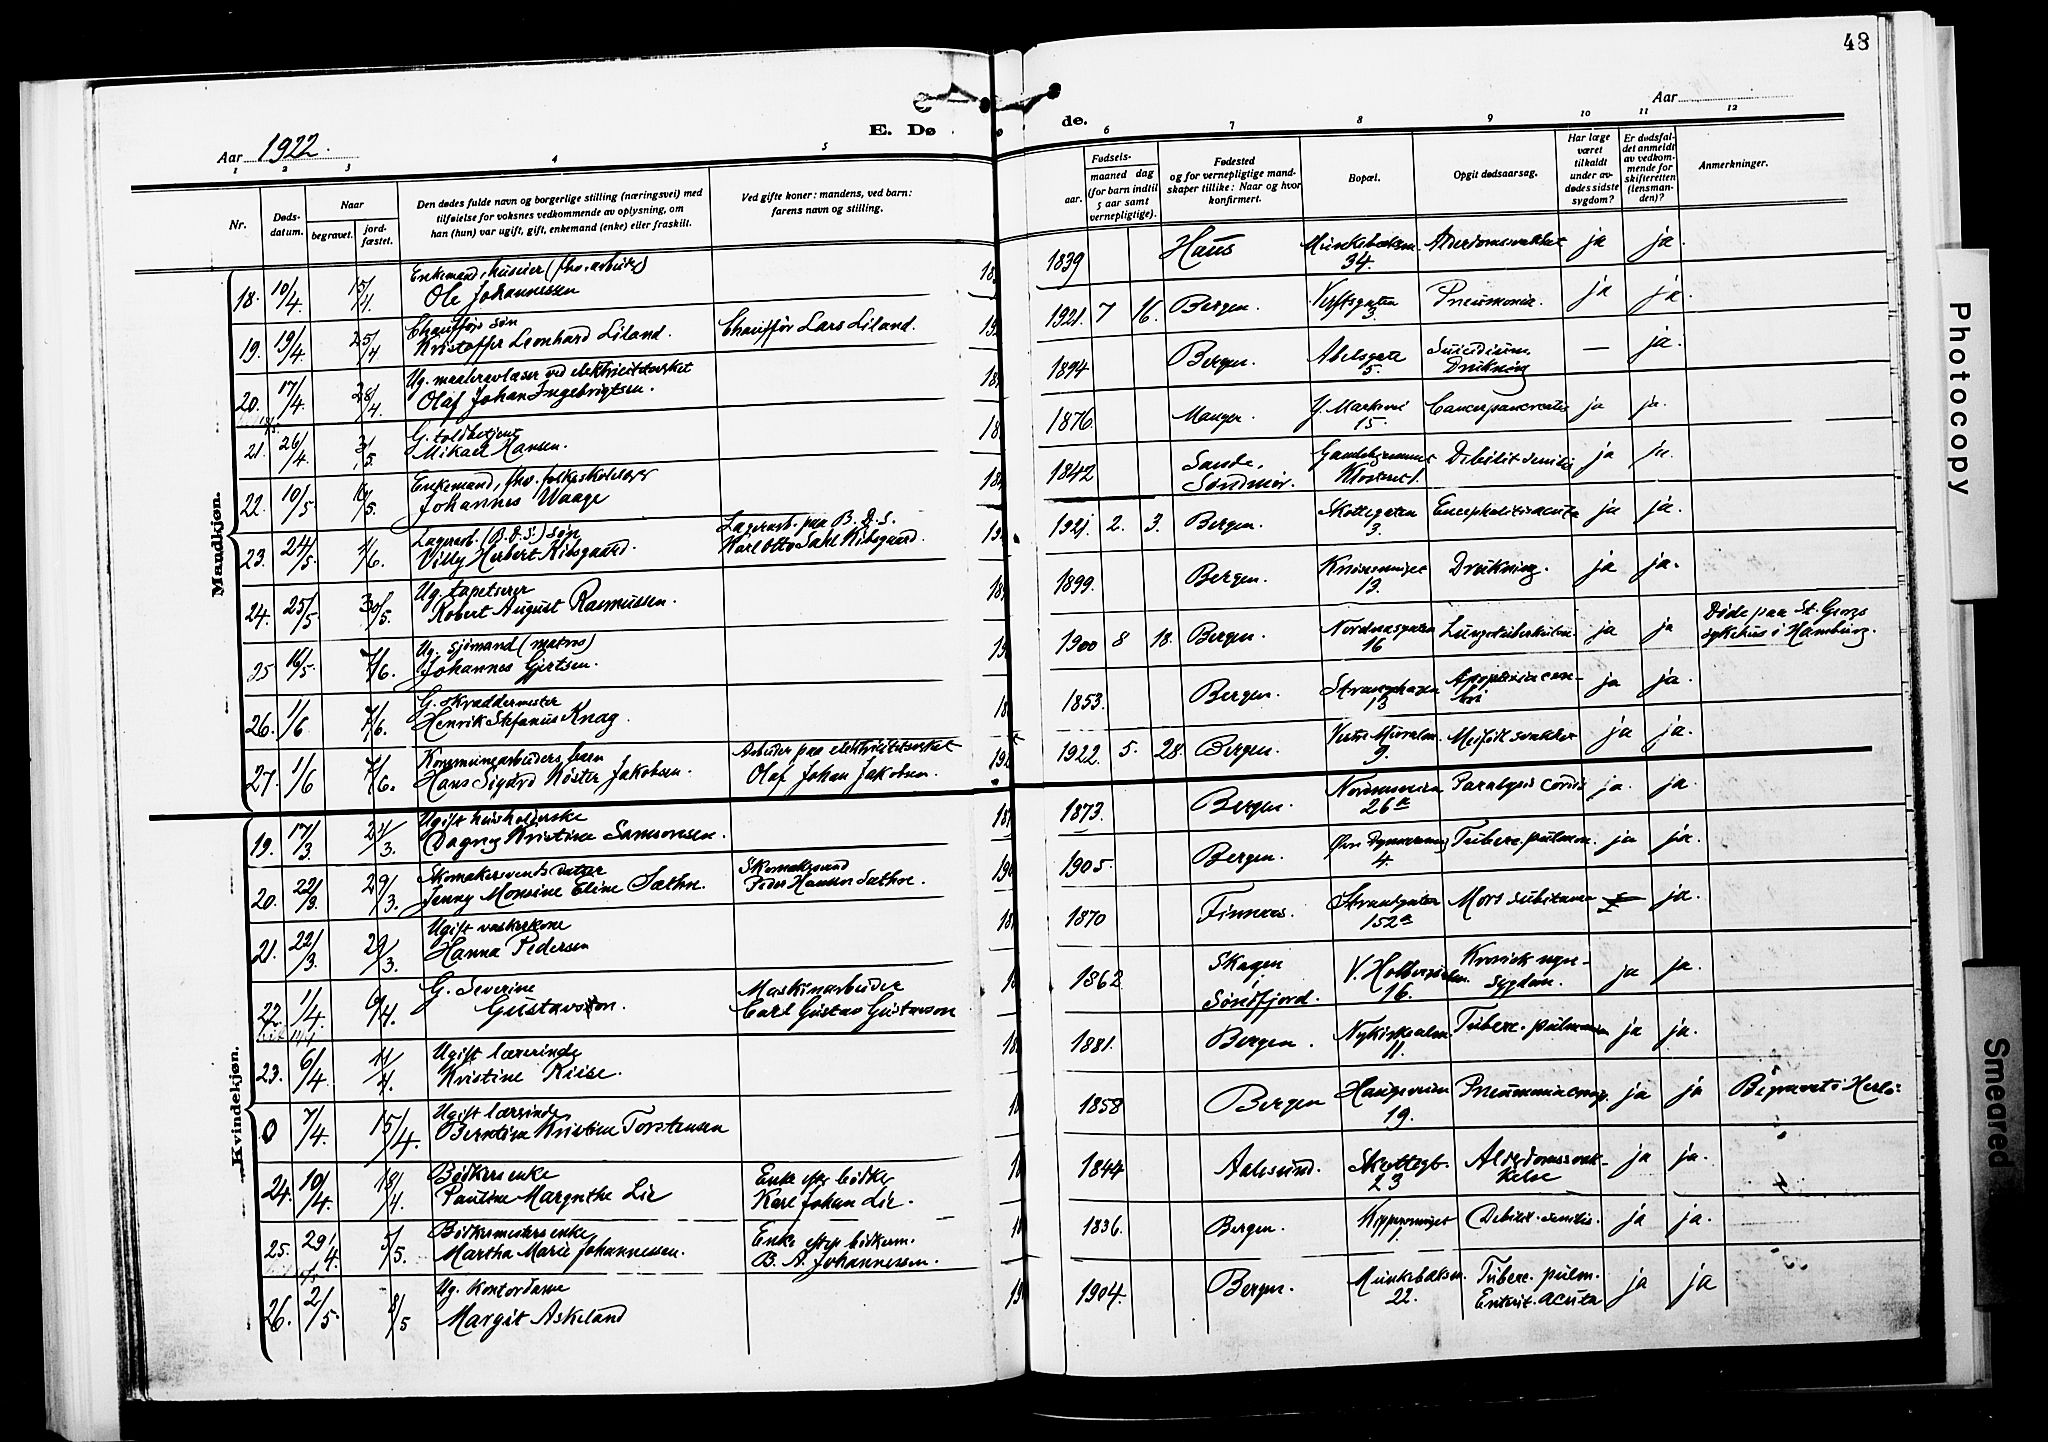 48
Aar 1922.
E. Dø
de.
Aar
1 2 3 4 5 6 7 8 9 10 11 12
Nr.
Døds-
datum.
Naar
begravet.
jord-
fæstet.
Den dødes fulde navn og borgerlige stilling (næringsvei) med
tilføielse for voksnes vedkommende av oplysning, om
han (hun) var ugift, gift, enkemand (enke) eller fraskilt.
Ved gifte koner: mandens, ved barn:
farens navn og stilling.
Fødsels-
aar.
maaned dag
(for barn indtil
5 aar samt
vernepligtige).
Fødested
og for vernepligtige mand-
skaper tillike: Naar og hvor
konfirmert.
Bopæl.
Opgit dødsaarsag.
Har læge
været
tilkaldt
under av-
dødes sidste
sygdom?
Er dødsfal-
det anmeldt
av vedkom-
mende for
skifteretten
(lensman-
den)?
Anmerkninger.
Mandkjøn.
18. 10/4. 15/4. Enkemand, huseier (fhv. arbeider)
Ole Johannessen
1839 Haus 34. ja ja.
19. 19/4. 25/4 Chaufførs søn
Kristoffer Leonhard Liland. Chauffør Lars Liland.
1921. 7 16. Bergen. Verftsgaten
3. Pneumonia. ja ja.
20. 17/4. 28/4. Ug. maaleravlæser ved elektricitetsverket
Olaf Johan Ingebrigtsen.
1894 Bergen. Abelsgate
5. Suicidium
Drukning — ja.
21. 26/4 3/5. G. toldbetjent
Mikael Hansen.
1876. Manger. Y. Markevei
15. Cancer pancreatis ja ja.
22. 10/5 16/5. Enkemand, fhv. folkeskolelærer
Johannes Waage
1842 Sande,
Søndmør. Klosteret 1. Debilit. senilis ja ja.
23. 24/5. 1/6. Lagerarb. (B.D.S.) søn
Villy Herbert Kibsgaard. Lagerarb. paa B.D.S.
Karl Otto Dahl Kibsgaard.
1921. 2. 3. Bergen. Skottegaten
3. Encephalitis acuta ja ja.
24. 25/5 30/5. Ug. tapetserer
Robert August Rasmussen.
1899. Bergen. 13. Drukning. ja ja.
25 16/5. 7/6. Ug. sjømand (matros)
Johannes Gjertsen.
1900 8 18. Bergen. Nordnesgaten
16 Lungetuberkulose. ja ja Døde paa St. Georgs
sykehus i Hamburg.
26. 1/6 7/6. G. skræddermester
Henrik Stefanus Knag.
1853. Bergen. Strangehagen
13 Apoplexia cere-
bri ja ja.
27. 1/6 7/6. Kommunearbeiders barn
Hans Sigurd Köster Jakobsen. Arbeider paa elektricitetsverket
Olaf Johan Jakobsen.
1922. 5. 28. Bergen. 9. Medfødt svakhet ja ja.
Kvindekjøn.
19. 17/3 21/3. Ugift husholderske
Dagny Kristine Samsonsen.
1873. Bergen. Nordnesveien
26a Paralysis cordis ja. ja.
20. 22/3. 29/3. Skomakersvends datter
Jenny Monsine Eline Sæthre. Skomakersvend
Peder Hansen Sæthre.
1905. Bergen. 4. Tuberc. pulmon. ja ja.
21. 22/3. 29/3. Ugift vaskerkone
Hanna Pedersen
1870 Finnaas. Strandgaten
152a Mors subitanea ja.
22. 1/4. 6/4. G. Severine
Gustavson. Maskinarbeider
Carl Gustav Gustavson
1862 Skagen
Søndfjord. V. Holbergsalm.
16. Kronisk nyre-
sygdom. ja ja.
23. 6/4 11/4. Ugift lærerinde
Kristine Riise.
1881. Bergen. Nykirkealm.
11. Tuberc. pulmonum ja ja.
0 7/4. 15/4. Ugift lærerinde
Berntine Kristine Torstensen
1858 Bergen Haugeveien
19. Pneumonia croup. ja ja Begravet i Herlø.
24. 10/4. 18/4. Bødkers enke
Pauline Margrethe Lie Enke efter bødker
Karl Johan Lie.
1844 Aalesund. Skottegt.
23 Alderdomssvak-
kelse ja ja.
25. 29/4. 5/5. Bødkermesters enke
Martha Marie Johannessen. Enke efter bødkerm.
B. A. Johannessen.
1836. Bergen. Debilit. senilis. ja ja.
26. 2/5. 8/5 Ug. Kontordame
Margit Askeland
1904. Bergen. Munkebæksm.
22. Tuberc. pulm.
Enterit. acuta ja ja
Photocopy
Smeared